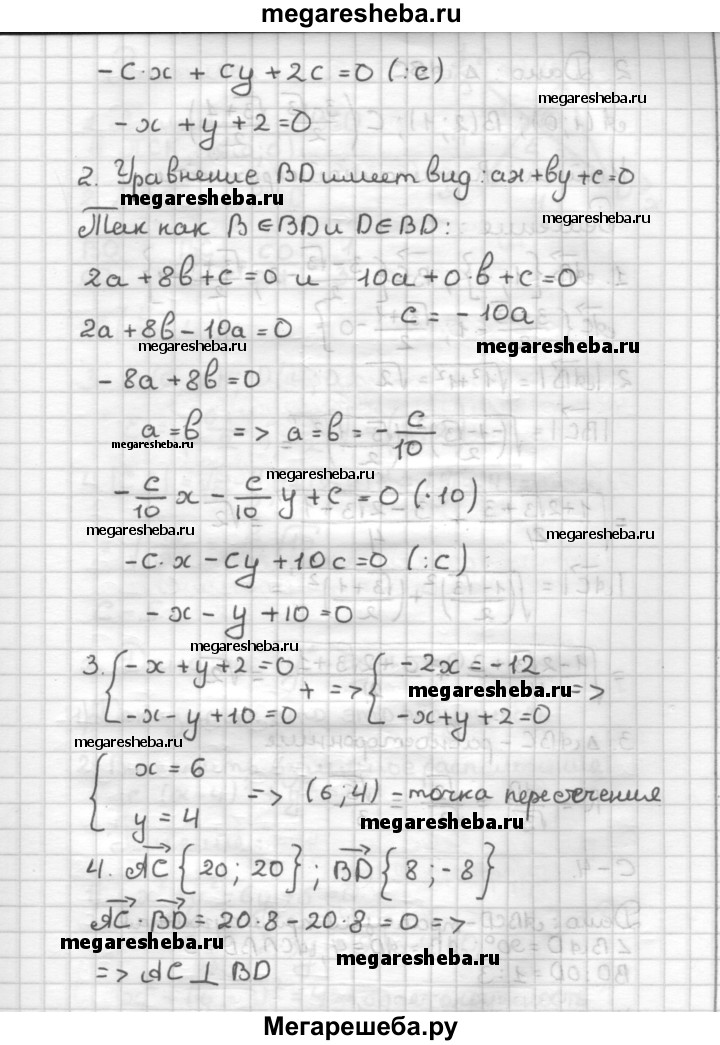 megaresheba.ru
-c·x + cy + 2c = 0 (:c)
megaresheba.ru
-x + y + 2 = 0
2. Уравнение BD имеет вид: ax+by+c=0
megaresheba.ru
megaresheba.ru
Так как B∈BD и D∈BD:
2a + 8b + c = 0 и 10a + 0·b + c = 0
2a + 8b - 10a = 0 c = -10a
megaresheba.ru megaresheba.ru
-8a + 8b = 0
a = b => a = b = -c/10
megaresheba.ru
megaresheba.ru
-c/10 x - c/10 y + c = 0 (·10)
megaresheba.ru megaresheba.ru
-c·x - cy + 10c = 0 (:c)
-x - y + 10 = 0
megaresheba.ru
3. { -x + y + 2 = 0 + => { -2x = -12
megaresheba.ru =>
-x - y + 10 = 0 -x + y + 2 = 0
megaresheba.ru
{ x = 6
=> (6; 4) - точка пересечения
y = 4
megaresheba.ru
4. AC {20; 20}; BD {8; -8}
AC · BD = 20·8 - 20·8 = 0 =>
megaresheba.ru megaresheba.ru
=> AC ⊥ BD
Мегарешеба.ру